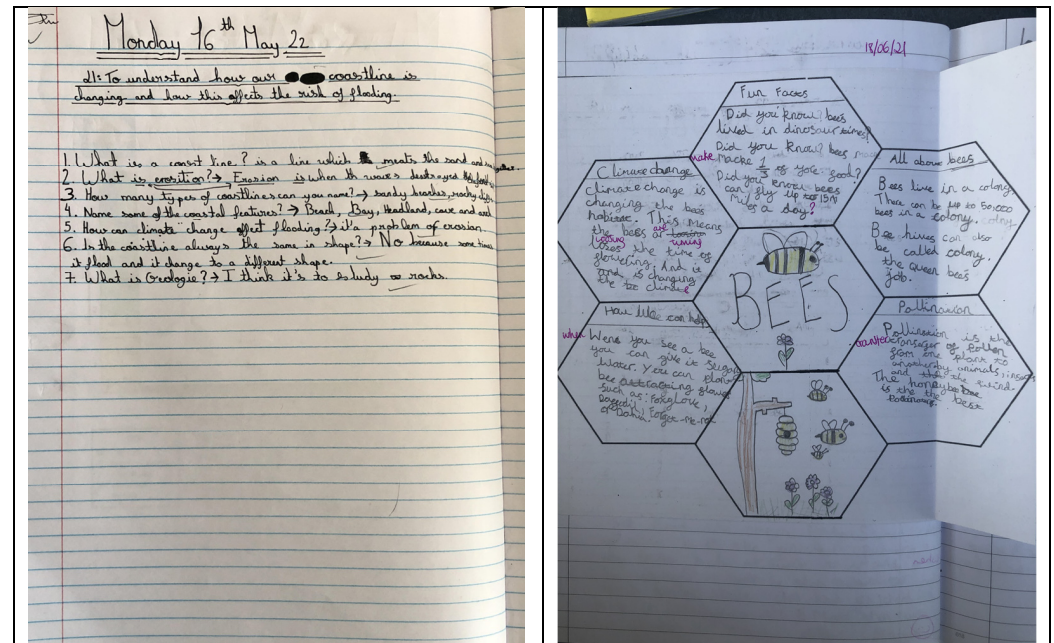 Monday 16th May 22
LI: To understand how our coastline is
changing and how this affects the risk of flooding.
1. What is a coast line? is a line which meats the sand and sea together.
2. What is erosition? → Erosion is when the waves destroyed
3. How many types of coastlines can you name? → sandy beaches, rocky
4. Name some of the coastal features? → Beach, Bay, Headland, cave and arch
5. How can climate change affect flooding? → it's a problem of erosion
6. Is the coastline always the same in shape? → No because some times
it flood and it change to a different shape.
7. What is Geologie? → I think it's to study rocks.
18/06/21
Fun Facts
Did you know? bees
lived in dinosaur times?
Did you know? bees
make Macke 1/3 of your food?
Did you know bees
can fly up to 15
Mil es a day?
Climate change
Climate change is
changing the bees
habitat. This Means
the bees are
loosing timing
loses the time of
flowering. And is
and is changing
the climate
All above bees
Bees live in a colony.
There can be up to 50,000
bees in a colony. colony
Bee hives can also
be called colony.
the queen bees
job.
BEES
How We can help
when Wens you see a bee
you can give it Sugar
Water. You can plant
bee attracting flowers
such as: Foxglove,
Daffodil, Forget-Me-not
or Dahlia.
Pollination
Pollination is the
transfer of Pollen
from one plant to
another by animals, insects
and the wind.
The honeybee
is the best
Pollinators.